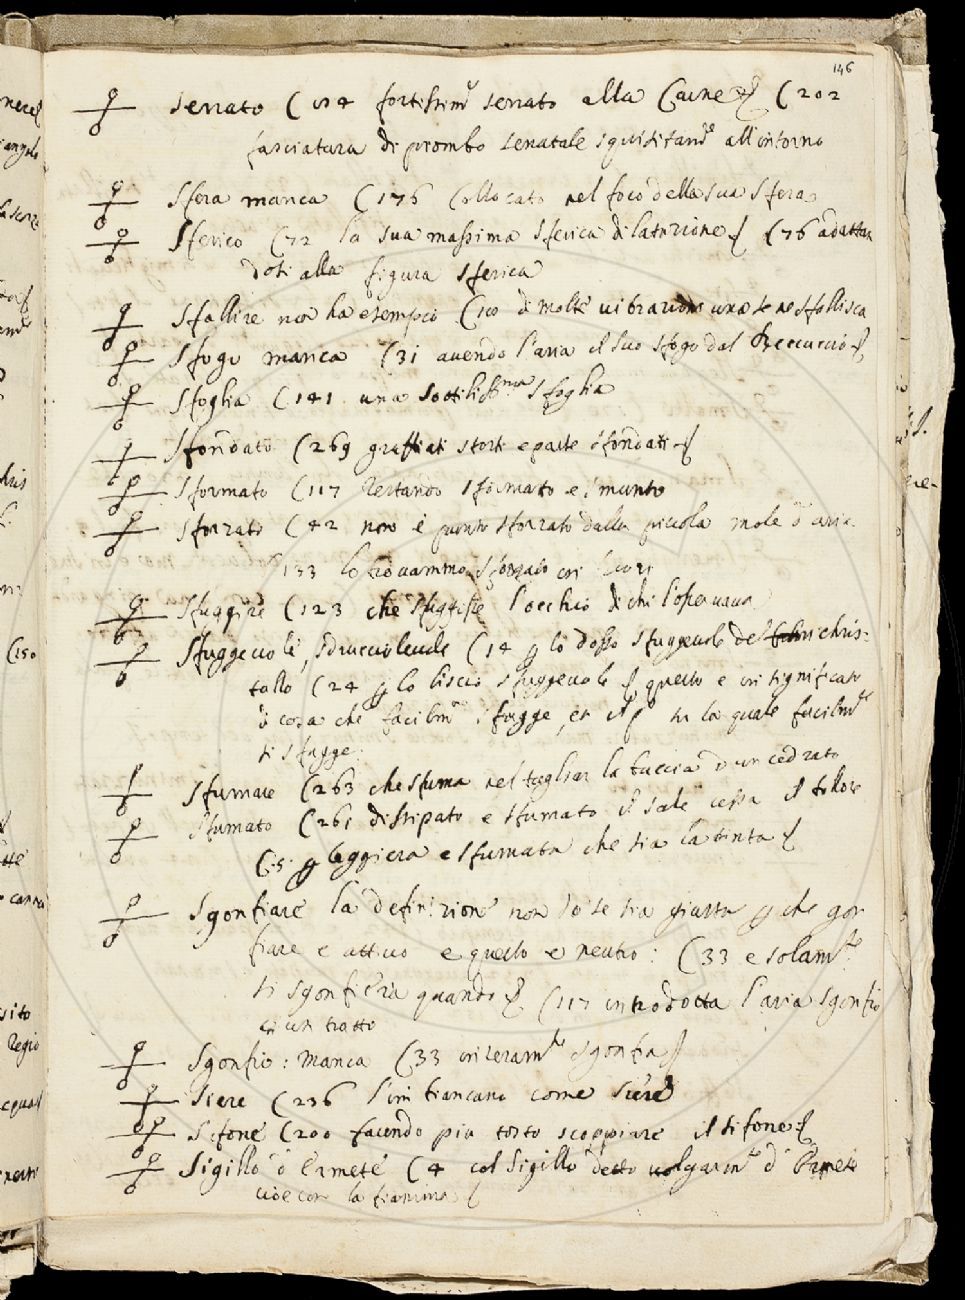 146
serrato (194 fortissim.e serrato alla Carne &
(202
fasciatura di piombo serratale squisitam.te all'intorno
Sfera manca (176 Collocato nel foco della sua sfera
Sferico (72 la sua massima sferica dilatazione & (76 adattan
dosi alla figura sferica
Sfallire non ha esempio (100 di molte vibrazioni una se ne sfallisca
Sfogo manca (31 avendo l'aria il suo sfogo dal Beccuccio &
Sfoglia (141 una sottiliss.ma sfoglia
Sfondato (269 graffiati storti e parte sfondati &
Sformato (117 restando sformato e smunto
Sforzato (42 non è punto sforzato dalla piccola mole d'aria
133 lo trovammo sforzato
Sfuggire (123 che sfuggisse l'occhio di chi l'osservava
Sfuggevole, sdrucciolevole (14 p lo dosso sfuggevole del chris:
tallo (24 p lo liscio sfuggevole & questo è in significato
di cosa che facilm.te sfugge, et su la quale facilm.te
si sfugge.
Sfumare (263 che sfuma nel tagliar la buccia d'un cedrato
Sfumato (261 dissipato e sfumato il sale cessa il bollore
p leggiera e sfumata che sia la tinta &
Sgonfiare la definizione non so se sia giusta p che gon
fiare è attivo e questo è neutro: (33 e solam.te
si sgonfieria quando & (117 introdotta l'aria sgonfiò
in un tratto
Sgonfio: manca (33 interam.te sgonfia &
Siere (236 l'imbiancano come siere
Sifone (200 facendo più tosto scoppiare il sifone &
Sigillo d'Ermete (4 col sigillo detto volgarm.te d'Ermete
cioè con la fiamma &